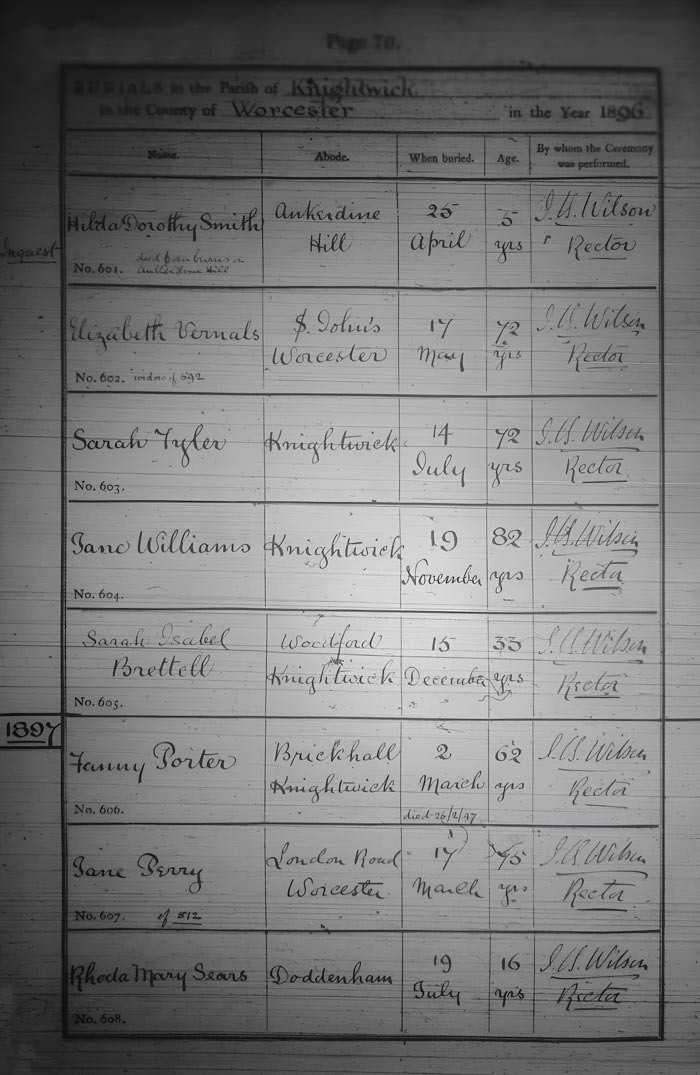 Page 76.
BURIALS in the Parish of Knightwick
in the County of Worcester in the Year 1896
Name. Abode. When buried. Age. By whom the Ceremony was performed.
Inquest
Hilda Dorothy Smith Ankerdine 25 5 Wilson
Hill April yrs Rector
died from burns
No. 601. Ankerdine Hill
Elizabeth Vernals S. John's 17 72 Wilson
Worcester May yrs Rector
No. 602. widow of 592
Sarah Tyler Knightwick 14 72 Wilson
July yrs Rector
No. 603.
Jane Williams Knightwick 19 82 Wilson
November yrs Rector
No. 604.
Sarah Isabel Woodford 15 33 Wilson
Brettell Knightwick December yrs Rector
No. 605.
1897
Fanny Porter Brickhall 2 62 Wilson
Knightwick March yrs Rector
No. 606. died 26/2/97
Jane Perry London Road 17 75 Wilson
Worcester March yrs Rector
No. 607. of 512
Rhoda Mary Sears Doddenham 19 16 Wilson
July yrs Rector
No. 608.